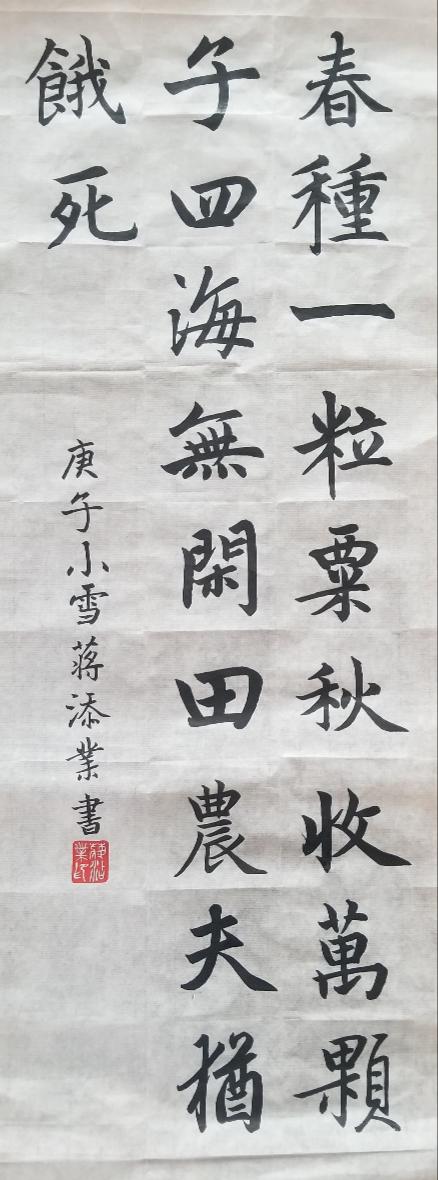 春種一粒粟秋收萬顆
子四海無閑田農夫猶
餓死
庚子小雪蒋添業書